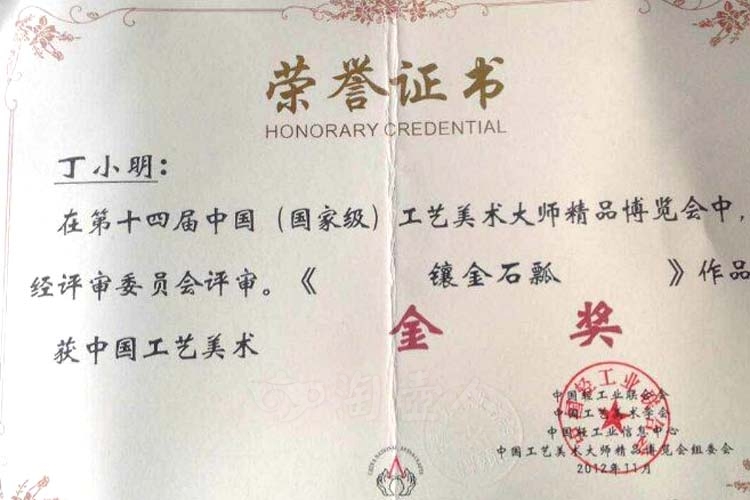 荣誉证书
HONORARY CREDENTIAL
丁小明：
在第十四届中国（国家级）工艺美术大师精品博览会中，
经评审委员会评审。《 镶金石瓢 》作品
获中国工艺美术 金 奖
中国轻工业联合会
中国工艺美术学会
中国轻工业信息中心
中国工艺美术大师精品博览会组委会
2012年11月